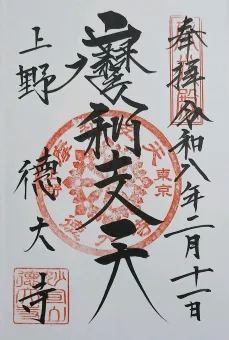 奉拝 令和八年二月十一日
摩利支天
上野 徳大寺
東京